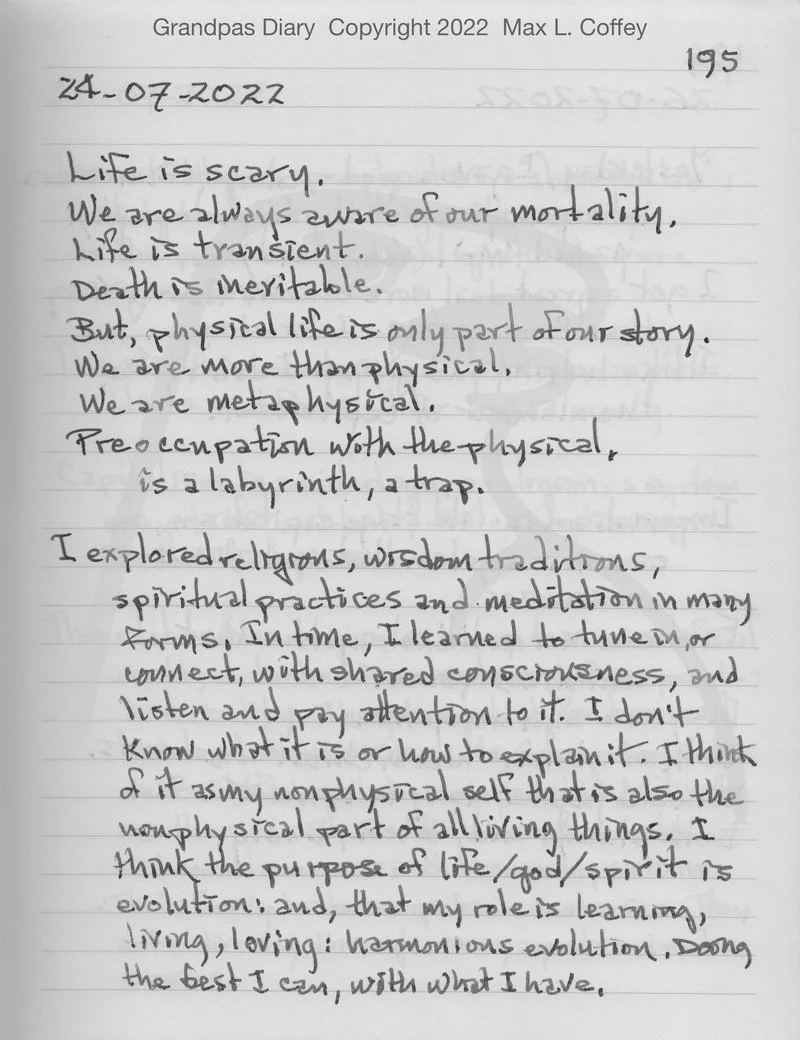 Grandpas Diary Copyright 2022 Max L. Coffey
195
24-07-2022
Life is scary.
We are always aware of our mortality.
Life is transient.
Death is inevitable.
But, physical life is only part of our story.
We are more than physical.
We are metaphysical.
Preoccupation with the physical,
is a labyrinth, a trap.
I explored religions, wisdom traditions,
spiritual practices and meditation in many
forms. In time, I learned to tune in, or
connect, with shared consciousness, and
listen and pay attention to it. I don't
know what it is or how to explain it. I think
of it as my nonphysical self that is also the
nonphysical part of all living things. I
think the purpose of life/god/spirit is
evolution: and, that my role is learning,
living, loving: harmonious evolution. Doing
the best I can, with what I have.